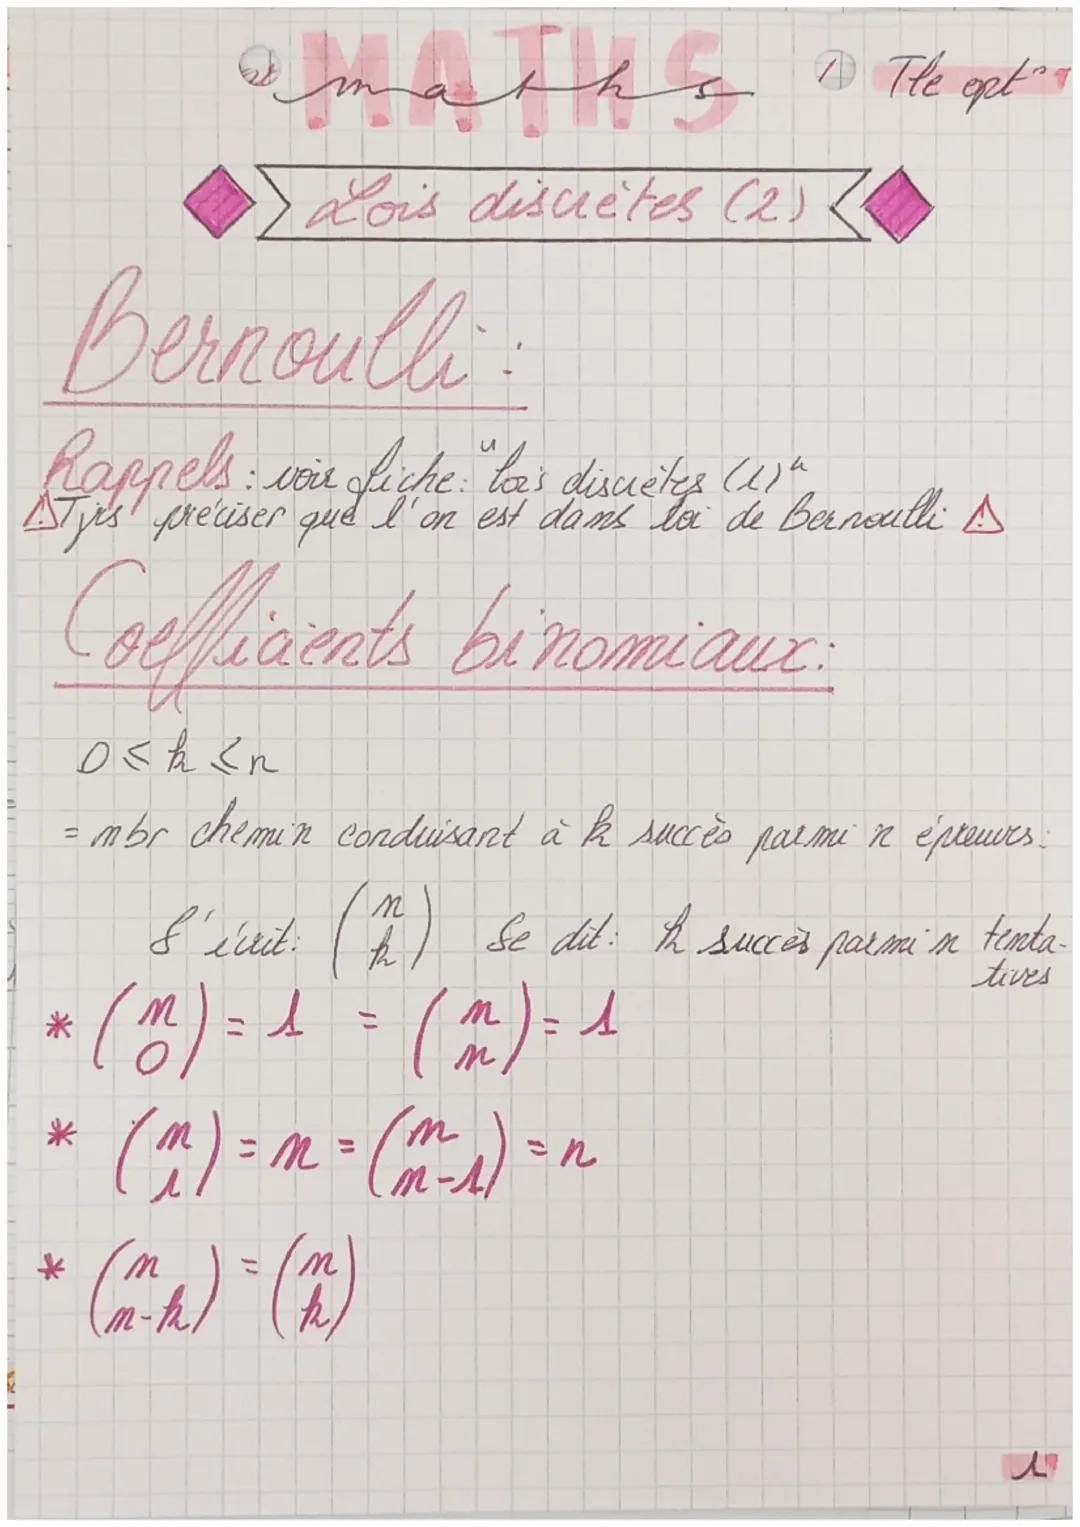 MATHS
maths
1 Tle opt°
Lois discrètes (2)
Bernoulli :
Rappels : voir fiche : "lois discrètes (1)"
⚠ Tjrs préciser que l'on est dans loi de Bernoulli ⚠
Coefficients binomiaux :
0 ⩽ k ⩽ n
= nbr chemin conduisant à k succès parmi n épreuves :
S'écrit : (n k) Se dit : k succès parmi n tenta-
tives
* (n 0) = 1 = (n n) = 1
* (n 1) = n = (n n-1) = n
* (n n-k) = (n k)
1